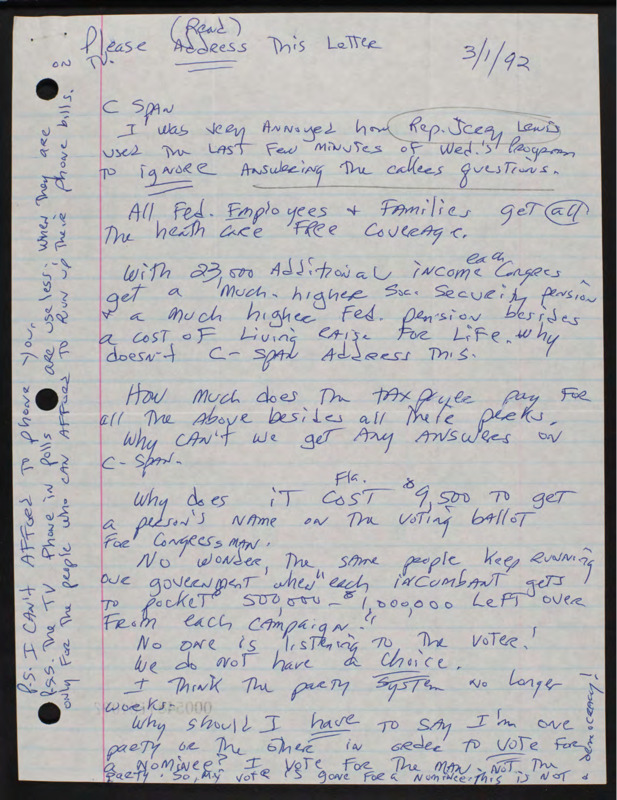 (Read)
Please Address This Letter
TV.
3/1/92
C Span
I was very Annoyed how Rep. Jerry Lewis
used The LAST Few minutes of Wed.'s Program
to ignore Answering The callers questions.
All Fed. Employees & FAmilies get all
The heath care Free Coverage.
each
With 23,000 Additional income Congres
get a much higher Soc. Security pension
& a much higher Fed. pension besides
a cost of Living raise For Life. Why
doesn't C-Span Address This.
How much does The tAx pryer pay For
all The Above besides all Their perks.
Why CAn't we get Any Answers on
C-Span.
Fla.
Why does iT COST $9,500 To get
a person's NAme on The voting bAlloT
For Congressman.
No wonder, The same people keep Running
our government when "each incumbant gets
to pocket $500,000 - $1,000,000 Left over
From each cAmpaign!"
No one is listening To The voter!
We do noT have a Choice.
I Think The party System no longer
works.
Why should I have To say I'm one
party or The other in order to vote For
a nominee? I vote For The mAn - NoT The
party. So, my vote is gone For a nominee. This is NoT a
democracy!
P.S. I CAn't AFFord To phone you.
P.S.S. The TV Phone in polls are useless, when They are
only For The people who can AFFord To Run up Their phone bills.